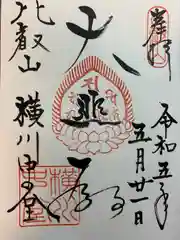 奉拝
令和五年
五月廿一日
大悲殿
比叡山
横川中堂